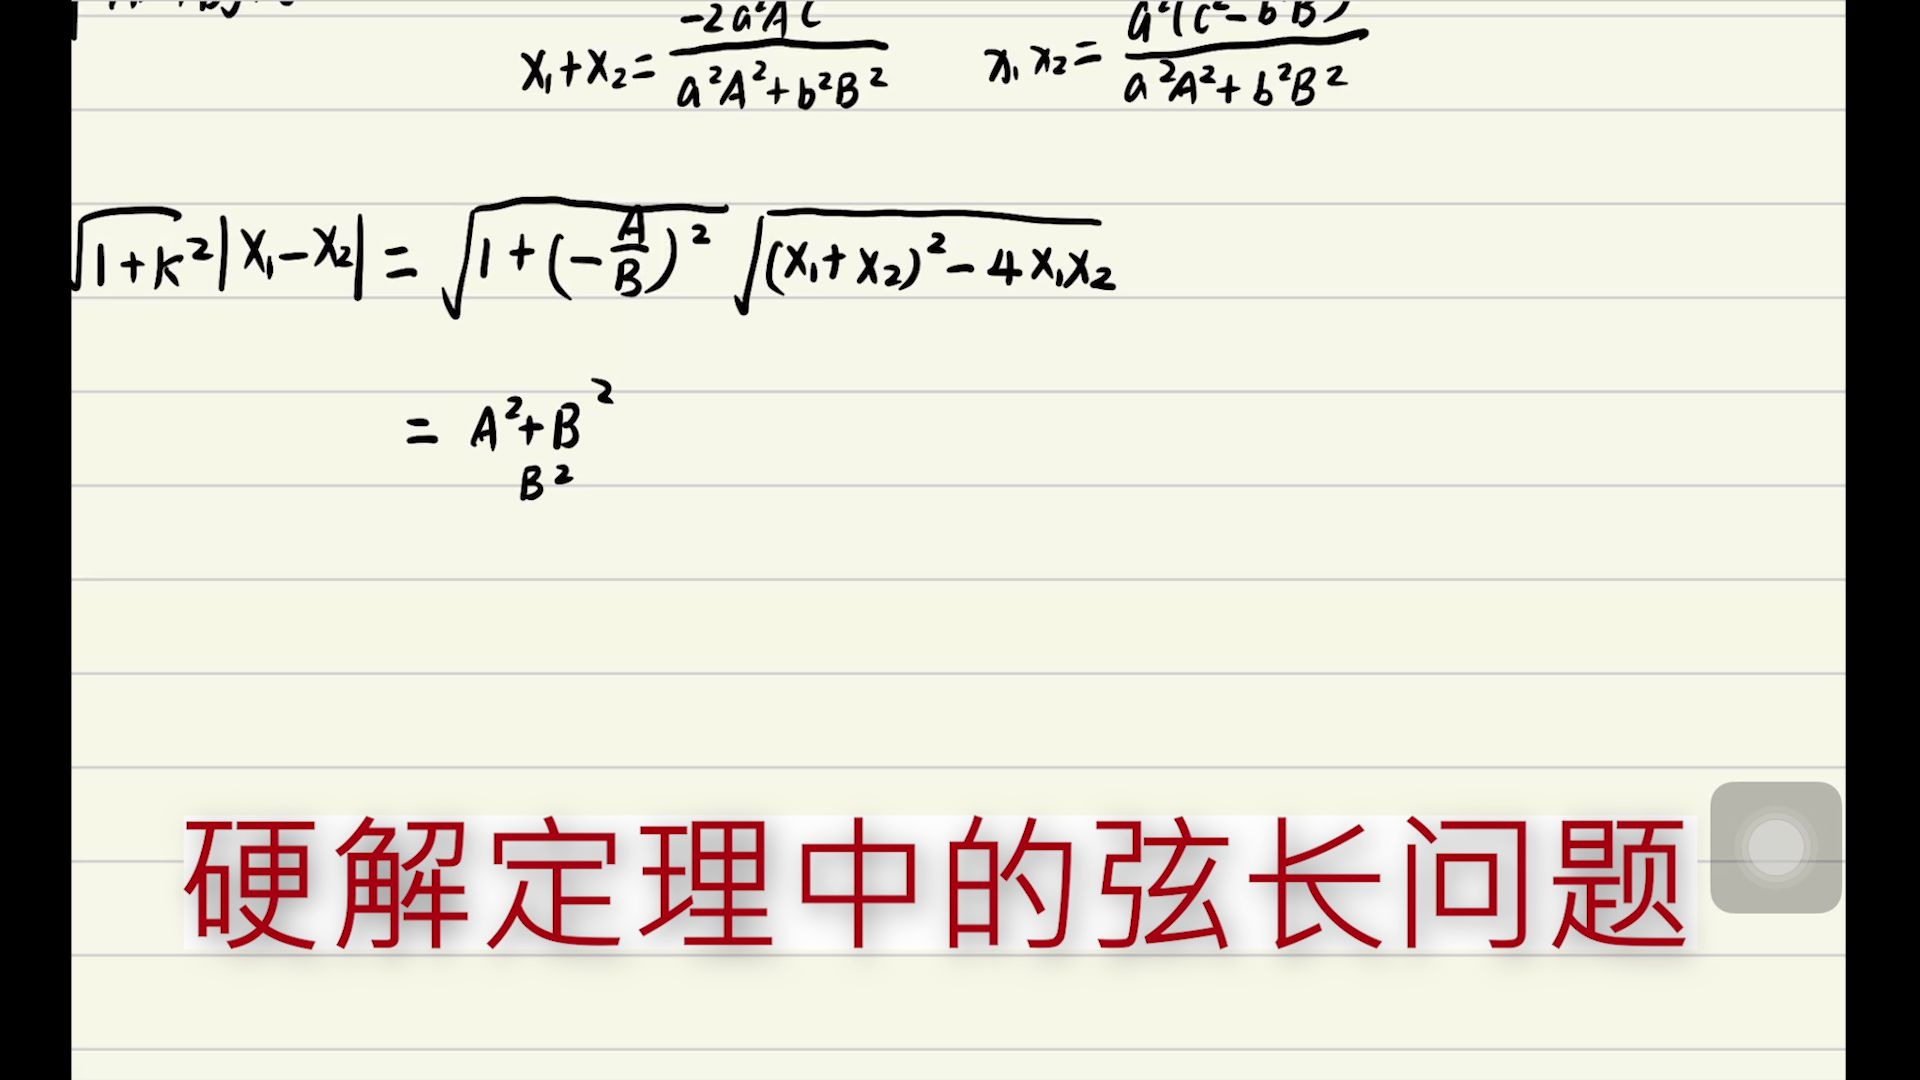 -2a²AC a²(c²-b²B²)
x₁+x₂= ――― x₁x₂= ―――
a²A²+b²B² a²A²+b²B²
√(1+k²)|x₁-x₂| = √(1+(-A/B)²) √((x₁+x₂)²-4x₁x₂)
= A²+B²
B²
硬解定理中的弦长问题